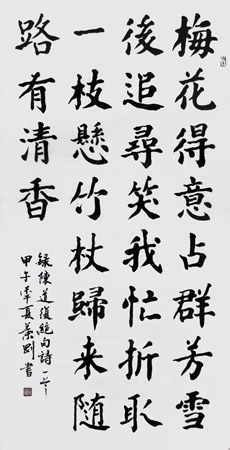 梅花得意占群芳雪
後追尋笑我忙折取
一枝懸竹杖歸来随
路有清香
録陳道復絶句詩一首
甲午夏書